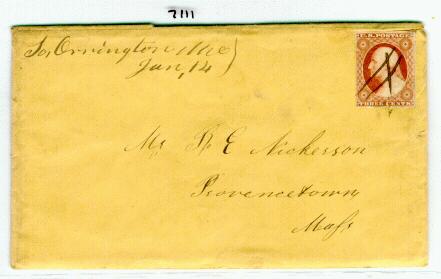 2111
So, Orrington Me
Jan, 14
U.S. POSTAGE
THREE CENTS
Mr E Nickerson
Provencetown
Mass